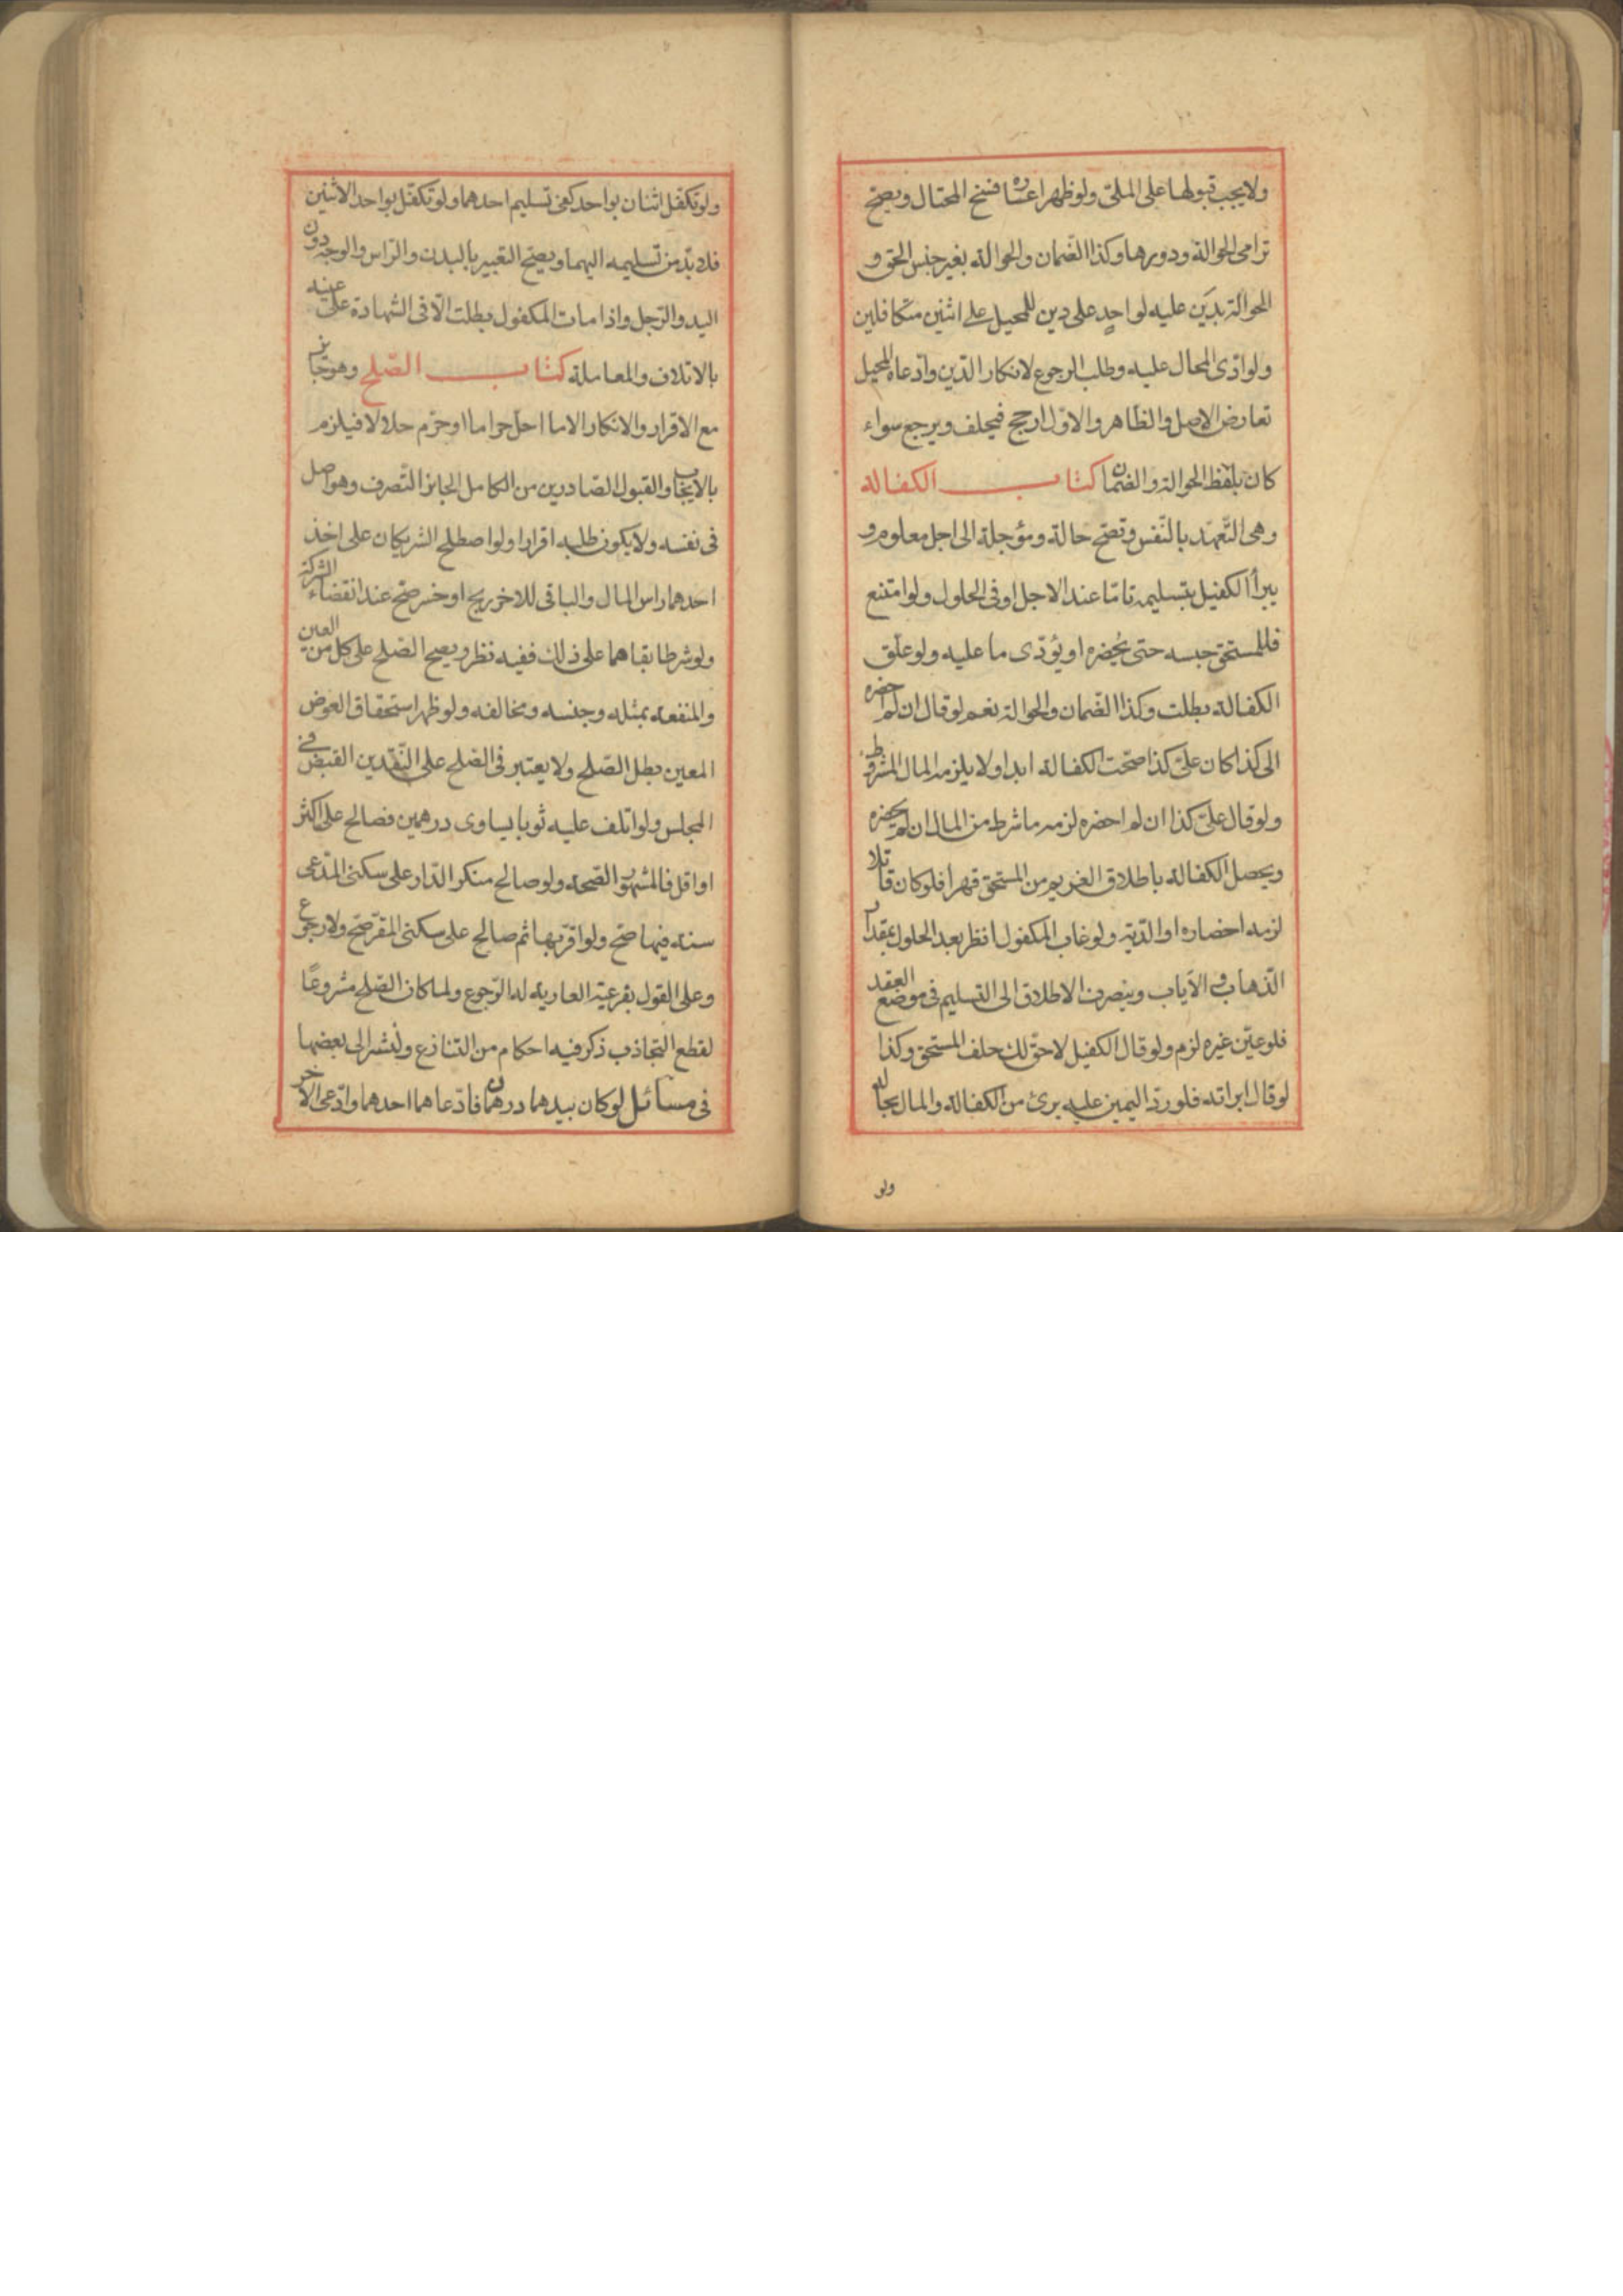 ولا يجب قبولها على الملئ ولو ظهر اعساره فسخ المحتال ويصح
ترامى الحوالة ودورها وكذا الضمان والحوالة بغير جنس الحق و
الحوالة بدين عليه لواحد على دين للمحيل على اثنين متكافلين
ولو ادى المحال عليه وطلب الرجوع لانكار الدين وادعاه المحيل
تعارض الاصل والظاهر والاول ارجح فيحلف ويرجع سواء
كان بلفظ الحوالة والضمان كتاب الكفالة
وهى التعهد بالنفس وتصح حالة ومؤجلة الى اجل معلوم و
يبرأ الكفيل بتسليمه تاما عند الاجل او فى الحلول ولو امتنع
فللمستحق حبسه حتى يحضره او يؤدى ما عليه ولو علق
الكفالة بطلت وكذا الضمان والحوالة نعم لو قال ان لم احضره
الى كذا كان على كذا صحت الكفالة ابدا ولا يلزمه المال المشروط
ولو قال على كذا ان لم احضره لزمه ما شرط من المال ان لم يحضره
ويحصل الكفالة باطلاق الغريم من المستحق قهرا فلو كان قاتلا
لزمه احضاره او الدية ولو غاب المكفول انظر بعد الحلول بمقدار
الذهاب والاياب وينصرف الاطلاق الى التسليم فى موضع العقد
فلو عين غيره لزم ولو قال الكفيل لا حق لك حلف المستحق وكذا
لو قال ابراته فلو رد اليمين عليه برئ من الكفالة والمال بحاله
ولو
ولو تكفل اثنان بواحد كفى تسليم احدهما ولو تكفل بواحد لاثنين
فلا بد من تسليمه اليهما ويصح التعبير بالبدن والراس والوجه دون
اليد والرجل واذا مات المكفول بطلت الا فى الشهادة على عينه
بالاتلاف والمعاملة كتاب الصلح وهو جايز
مع الاقرار والانكار الا ما احل حراما او حرم حلالا فيلزم
بالايجاب والقبول الصادرين من الكامل الجائز التصرف وهو اصل
فى نفسه ولا يكون طلبه اقرارا ولو اصطلح الشريكان على اخذ
احدهما راس المال والباقى للاخر ربح او خسر صح عند انقضاء الشركة
ولو شرطا بقاهما على ذلك ففيه نظر ويصح الصلح على كل من العين
والمنفعة بمثله وجنسه ومخالفه ولو ظهر استحقاق العوض
المعين بطل الصلح ولا يعتبر فى الصلح على النقدين القبض فى
المجلس ولو اتلف عليه ثوبا يساوى درهمين فصالح على اكثر
او اقل فالمشهور الصحة ولو صالح منكر الدار على سكنى المدعى
سنة فيها صح ولو اقر بها ثم صالح على سكنى المقر صح ولا رجوع
وعلى القول بفرعية العارية له الرجوع ولما كان الصلح مشروعا
لقطع التجاذب ذكر فيه احكام من التنازع ولنشر الى بعضها
فى مسائل لو كان بيدهما درهمان فادعاهما احدهما وادعى الاخر